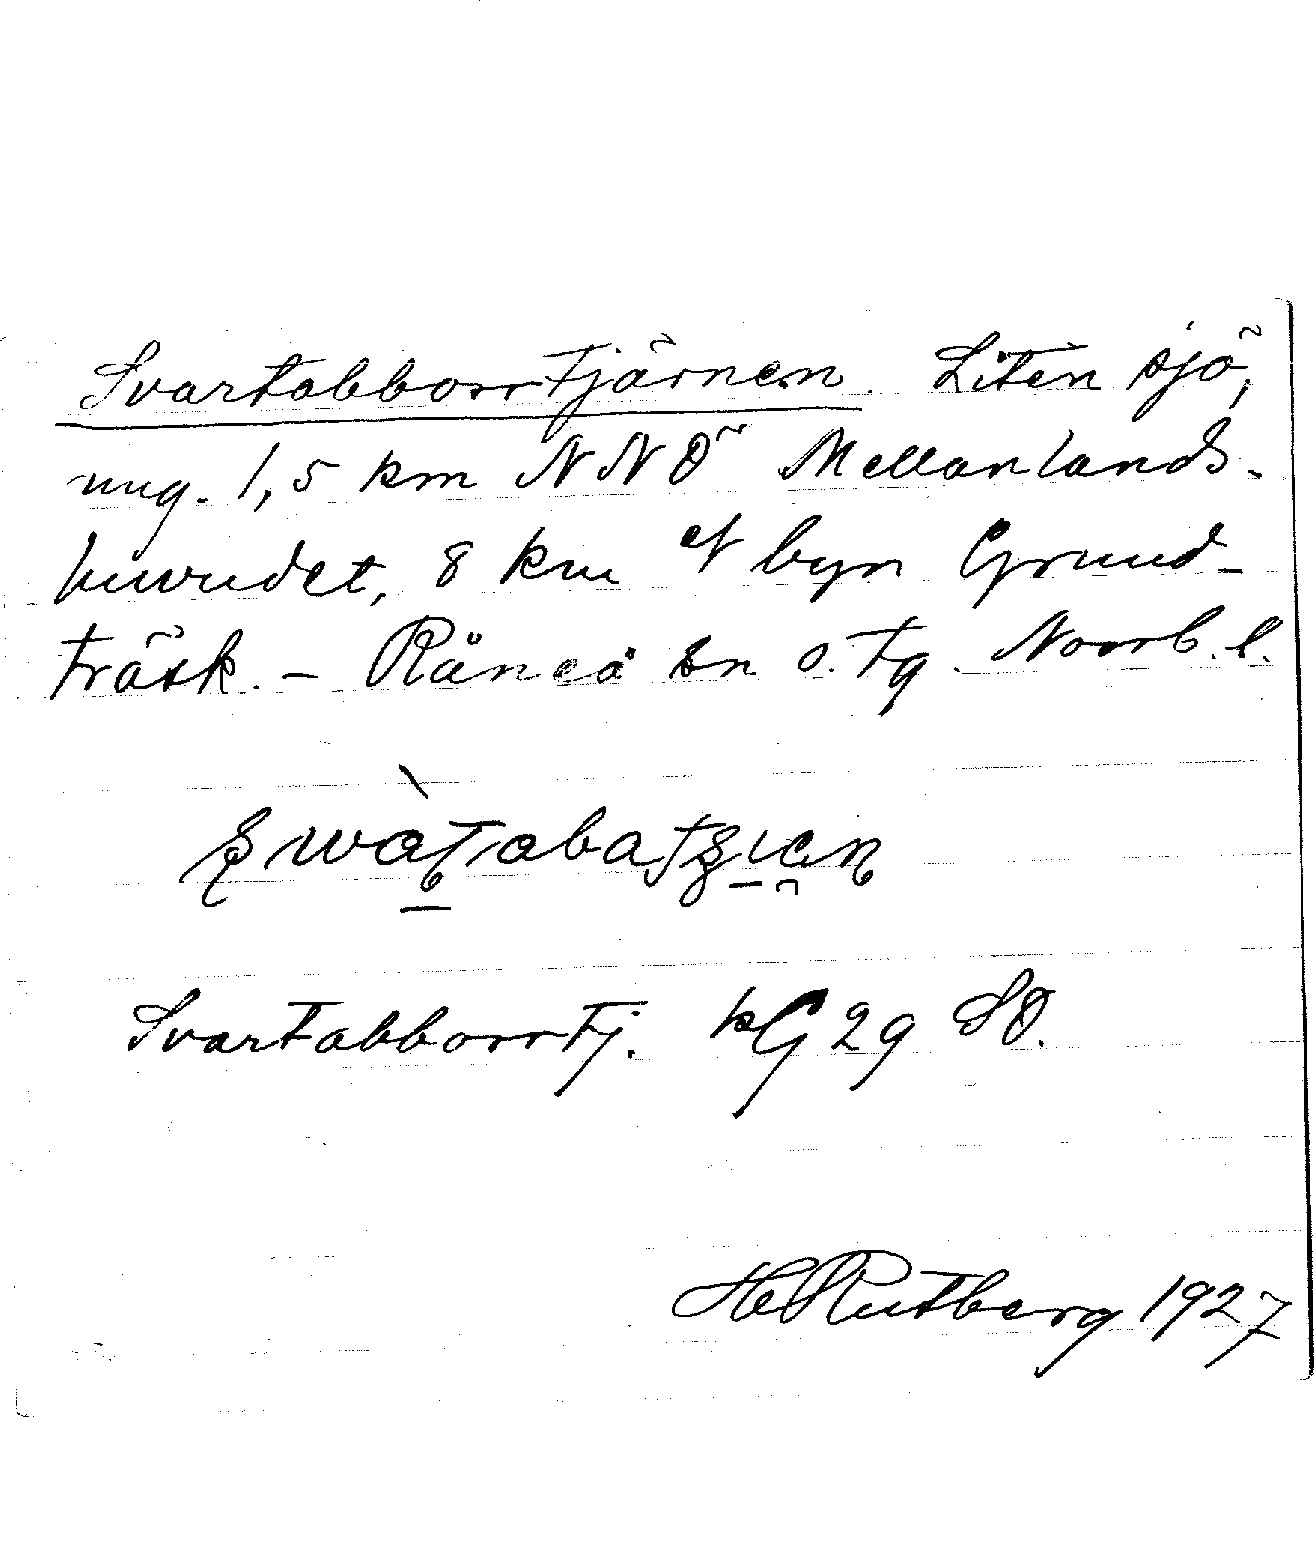 Svartabborrtjärnen. Liten sjö,
ung. 1,5 km NNÖ Mellanlands-
huvudet, 8 km N byn Grund-
träsk. – Råneå sn o. tg. Norrb. l.
Svartabborrtj. kG 29 SO.
H Rutberg 1927